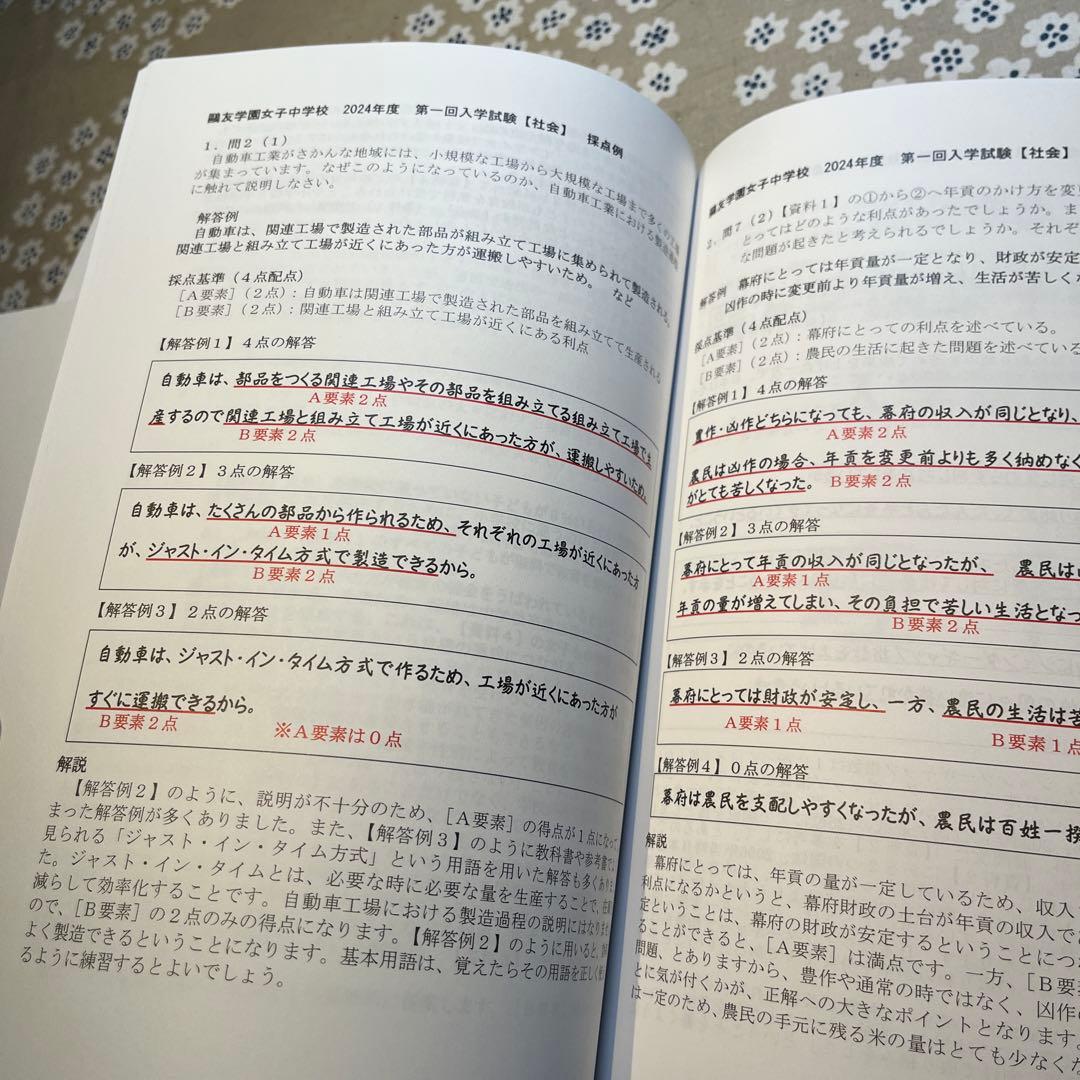 鷗友学園女子中学校　2024年度　第一回入学試験【社会】　採点例
1．問2（1）
自動車工業がさかんな地域には、小規模な工場から大規模な工場まで多くの工場
が集まっています。なぜこのようになっているのか、自動車工業における製造過程
に触れて説明しなさい。
解答例
自動車は、関連工場で製造された部品が組み立て工場に集められて製造される。
関連工場と組み立て工場が近くにあった方が運搬しやすいため。　など
採点基準（4点配点）
［A要素］（2点）：自動車は関連工場で製造された部品を組み立てて生産される
［B要素］（2点）：関連工場と組み立て工場が近くにある利点
【解答例1】4点の解答
自動車は、部品をつくる関連工場やその部品を組み立てる組み立て工場で生
A要素2点
産するので関連工場と組み立て工場が近くにあった方が、運搬しやすいため。
B要素2点
【解答例2】3点の解答
自動車は、たくさんの部品から作られるため、それぞれの工場が近くにあった方
A要素1点
が、ジャスト・イン・タイム方式で製造できるから。
B要素2点
【解答例3】2点の解答
自動車は、ジャスト・イン・タイム方式で作るため、工場が近くにあった方が
すぐに運搬できるから。
B要素2点　※A要素は0点
解説
【解答例2】のように、説明が不十分のため、［A要素］の得点が1点になって
まった解答例が多くありました。また、【解答例3】のように教科書や参考書で
見られる「ジャスト・イン・タイム方式」という用語を用いた解答も多くありまし
た。ジャスト・イン・タイムとは、必要な時に必要な量を生産することで、在庫
減らして効率化することです。自動車工場における製造過程の説明にはなりませ
ので、［B要素］の2点のみの得点になります。【解答例2】のように用いると、
よく製造できるということになります。基本用語は、覚えたらその用語を正しく
るように練習するとよいでしょう。
鷗友学園女子中学校　2024年度　第一回入学試験【社会】
2．問7（2）【資料1】の①から②へ年貢のかけ方を変更
とってはどのような利点があったでしょうか。ま
な問題が起きたと考えられるでしょうか。それぞ
解答例　幕府にとっては年貢量が一定となり、財政が安定
凶作の時に変更前より年貢量が増え、生活が苦しくな
採点基準（4点配点）
［A要素］（2点）：幕府にとっての利点を述べている。
［B要素］（2点）：農民の生活に起きた問題を述べている
【解答例1】4点の解答
豊作・凶作どちらになっても、幕府の収入が同じとなり、
A要素2点
農民は凶作の場合、年貢を変更前よりも多く納めなく
がとても苦しくなった。　B要素2点
【解答例2】3点の解答
幕府にとって年貢の収入が同じとなったが、　農民は
A要素1点
年貢の量が増えてしまい、その負担で苦しい生活となっ
B要素2点
【解答例3】2点の解答
幕府にとっては財政が安定し、一方、農民の生活は苦
A要素1点　B要素1点
【解答例4】0点の解答
幕府は農民を支配しやすくなったが、農民は百姓一揆
解説
幕府にとっては、年貢の量が一定しているため、収入
利点になるかというと、幕府財政の土台が年貢の収入で
定ということは、幕府の財政が安定するということにつ
ることができると、［A要素］は満点です。一方、［B要
問題、とありますから、豊作や通常の時ではなく、凶作
とに気が付くかが、正解への大きなポイントとなります。
は一定のため、農民の手元に残る米の量はとても少なくな